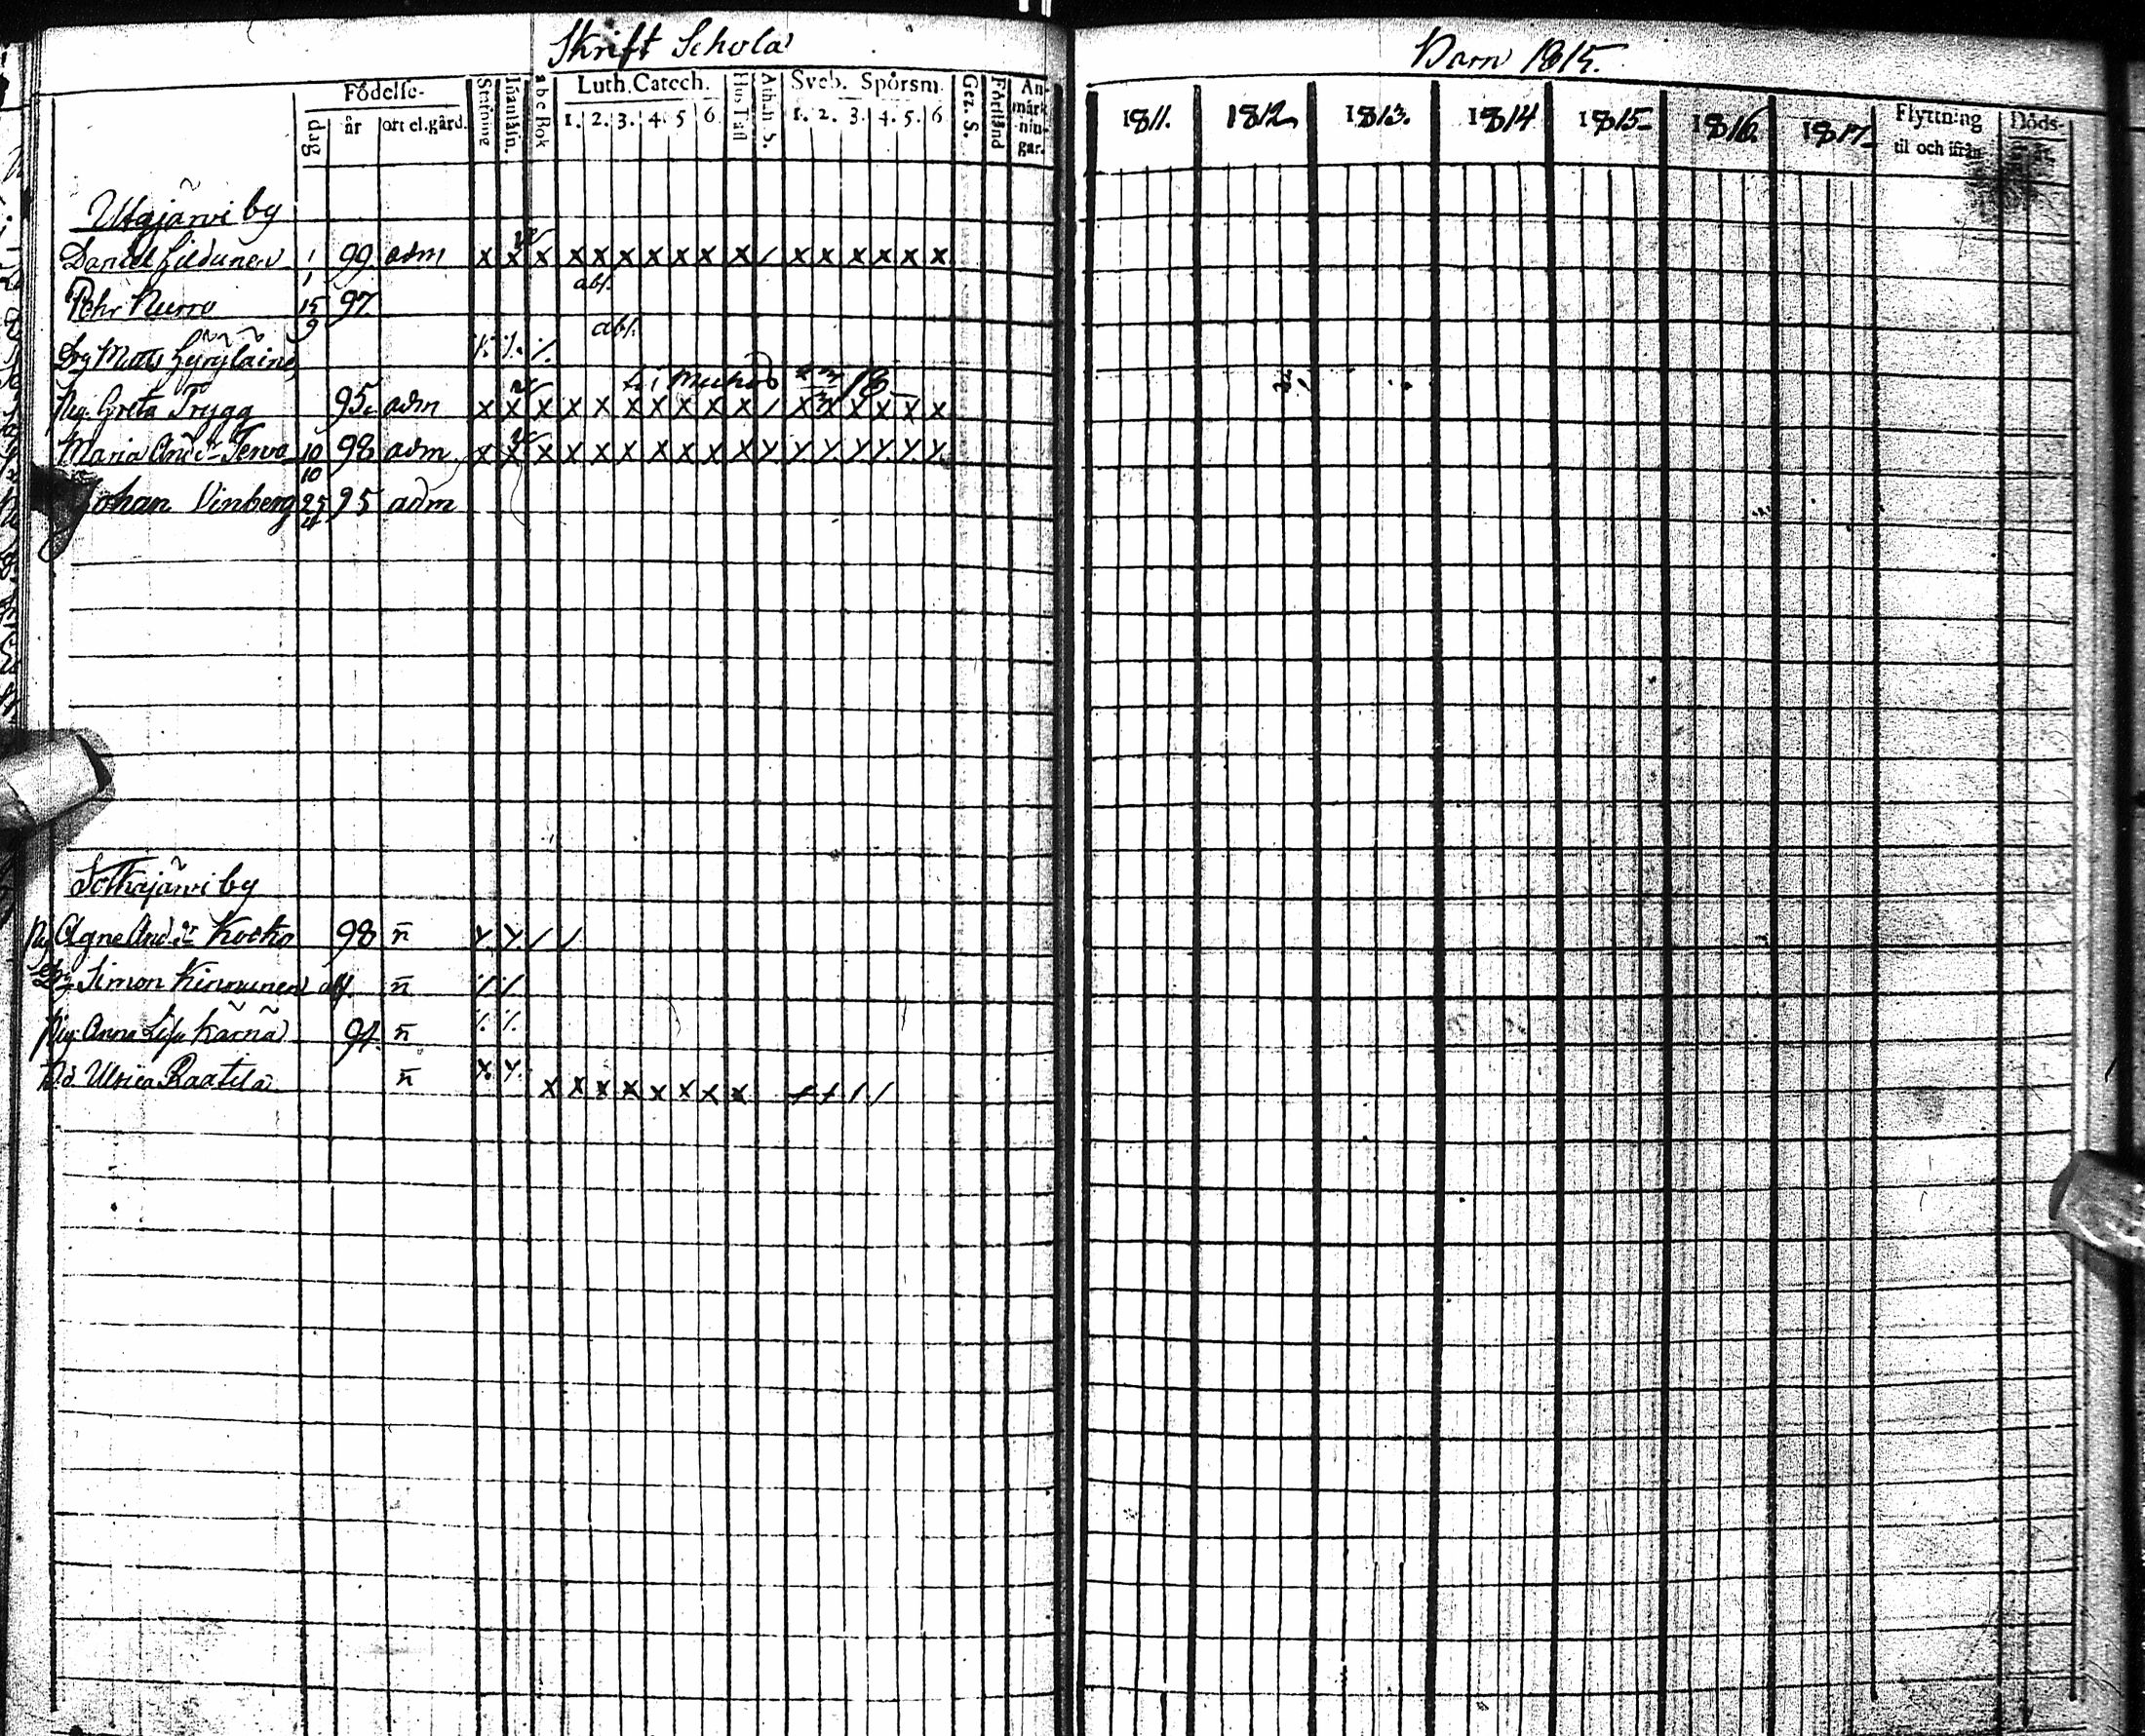 Skrift Schola Barn 1815.
Födelse- Stafning Inanläsn. abc Bok Luth. Catech. Hus Tafl Athan. S. Sveb. Spörsm. Gez. S. Förstånd Anmärkningar.
dag år ort el. gård. 1. 2. 3. 4. 5 6. 1. 2. 3. 4. 5. 6
1811. 1812 1813. 1814 1815 1816. 1817 Flyttning til och ifrån Döds-
järvi by
Daniel 1/1 99 adm x x x x x x x x x x / x x x x x x
abs.
Pehr Nurro 15/9 97
abs.
Drg Matts
Pig. Greta Trygg 95. adm x x x x x x x x x x / x x x x x x
Maria And: dr Terva 10/10 98 adm x x x x x x x x x x x y y y y y y
Johan Vinberg 25/4 95 adm
Sotkajärvi by
Pig Agne And: dr Kocko 98 n̄ y y / /
Simon Kinnunen n̄ ٪ ٪
Pig. Anna Lisa Kärnä 94 n̄ ٪ ٪
Ulrica Raatila n̄ x y. x x x x x x x x + + / /